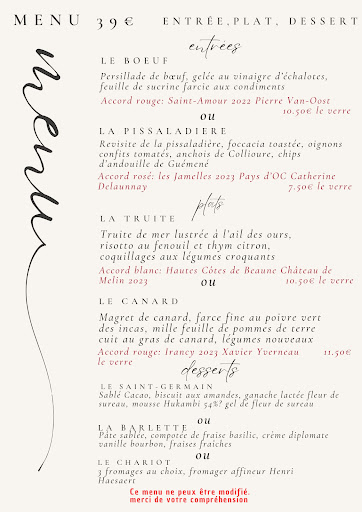 MENU 39€ ENTRÉE,PLAT, DESSERT
menu
entrées
LE BOEUF
Persillade de bœuf, gelée au vinaigre d'échalotes,
feuille de sucrine farcie aux condiments
Accord rouge: Saint-Amour 2022 Pierre Van-Oost
10.50€ le verre
ou
LA PISSALADIERE
Revisite de la pissaladière, foccacia toastée, oignons
confits tomatés, anchois de Collioure, chips
d'andouille de Guémené
Accord rosé: les Jamelles 2023 Pays d'OC Catherine
Delaunnay 7.50€ le verre
plats
LA TRUITE
Truite de mer lustrée à l'ail des ours,
risotto au fenouil et thym citron,
coquillages aux légumes croquants
Accord blanc: Hautes Côtes de Beaune Château de
Melin 2023 10.50€ le verre
ou
LE CANARD
Magret de canard, farce fine au poivre vert
des incas, mille feuille de pommes de terre
cuit au gras de canard, légumes nouveaux
Accord rouge: Irancy 2023 Xavier Yverneau 11.50€
le verre
desserts
LE SAINT-GERMAIN
Sablé Cacao, biscuit aux amandes, ganache lactée fleur de
sureau, mousse Hukambi 54%? gel de fleur de sureau
ou
LA BARLETTE
Pâte sablée, compotée de fraise basilic, crème diplomate
vanille bourbon, fraises fraîches
ou
LE CHARIOT
3 fromages au choix, fromager affineur Henri
Haesaert
Ce menu ne peux être modifié.
merci de votre compréhension